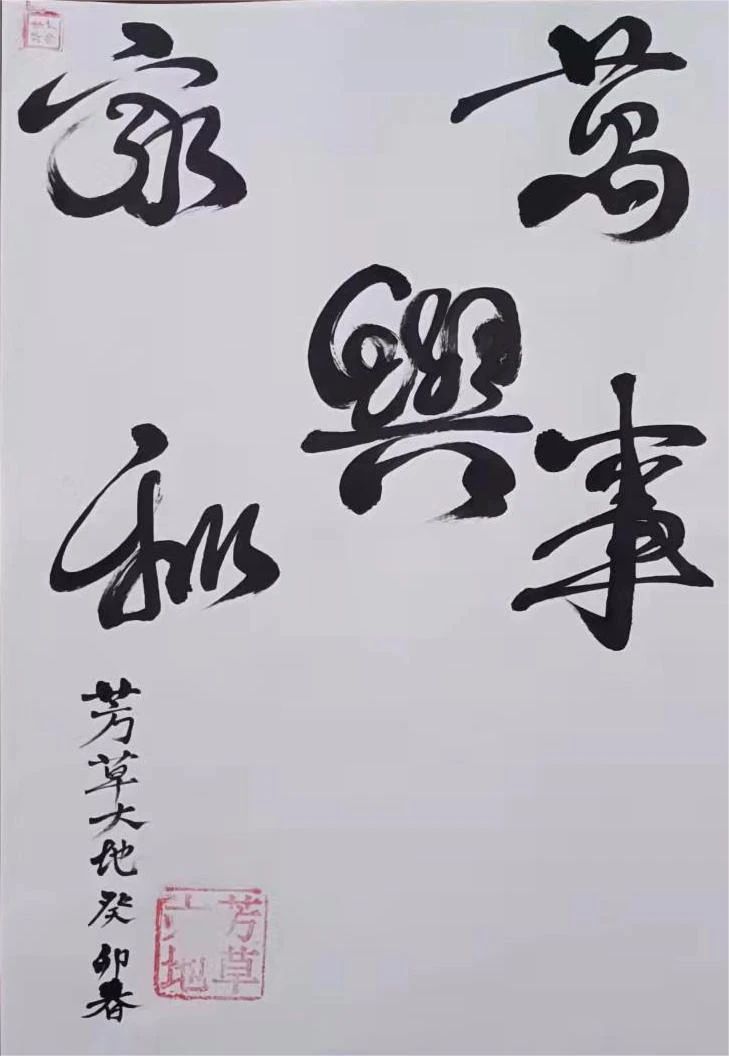 家和
萬事
興
芳草大地癸卯春
芳草
大地